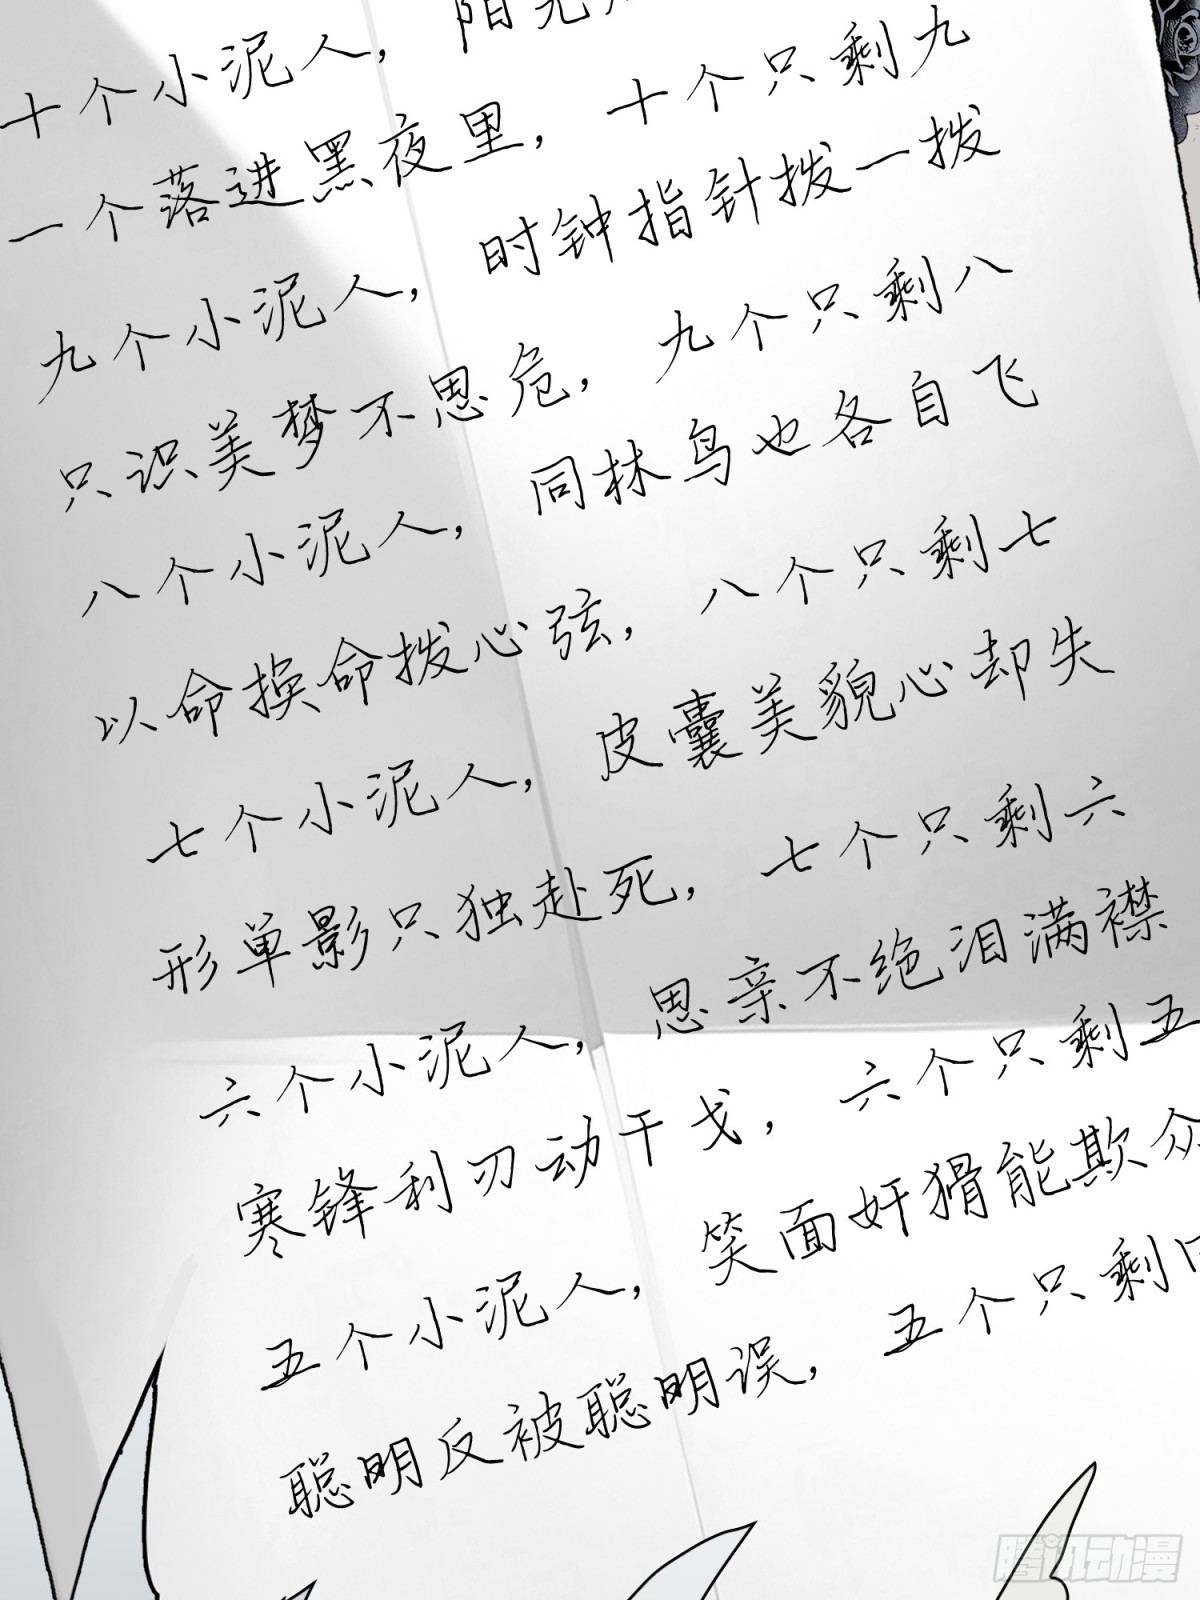 十个小泥人，阳光
一个落进黑夜里，十个只剩九
九个小泥人，时钟指针拨一拨
只识美梦不思危，九个只剩八
八个小泥人，同林鸟也各自飞
以命换命拨心弦，八个只剩七
七个小泥人，皮囊美貌心却失
形单影只独赴死，七个只剩六
六个小泥人，思亲不绝泪满襟
寒锋利刃动干戈，六个只剩五
五个小泥人，笑面奸猾能欺众
聪明反被聪明误，五个只剩
腾讯动漫